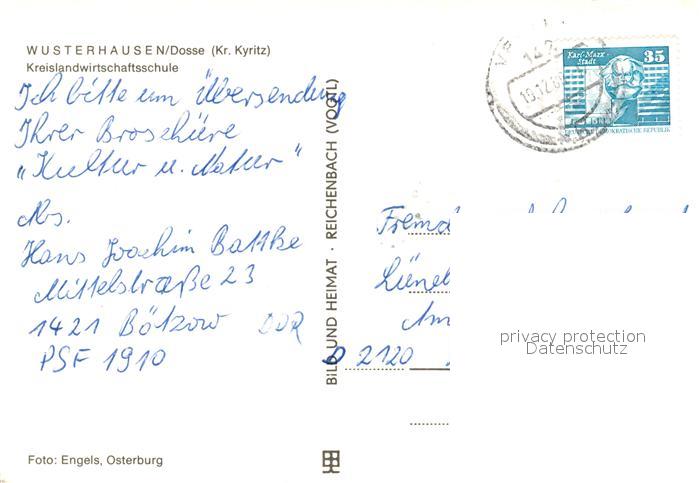 WUSTERHAUSEN/Dosse (Kr. Kyritz)
Kreislandwirtschaftsschule
Ich bitte um Übersendung
Ihrer Broschüre
„Kultur u. Natur"
Abs.
Hans Joachim Battke
Mittelstraße 23
1421 Bötzow DDR
PSF 1910
BILD UND HEIMAT · REICHENBACH (VOGTL)
Foto: Engels, Osterburg
Karl-Marx-Stadt
35
DEUTSCHE DEMOKRATISCHE REPUBLIK
142
Fremd
Lüneb
Am
D 2120
privacy protection
Datenschutz